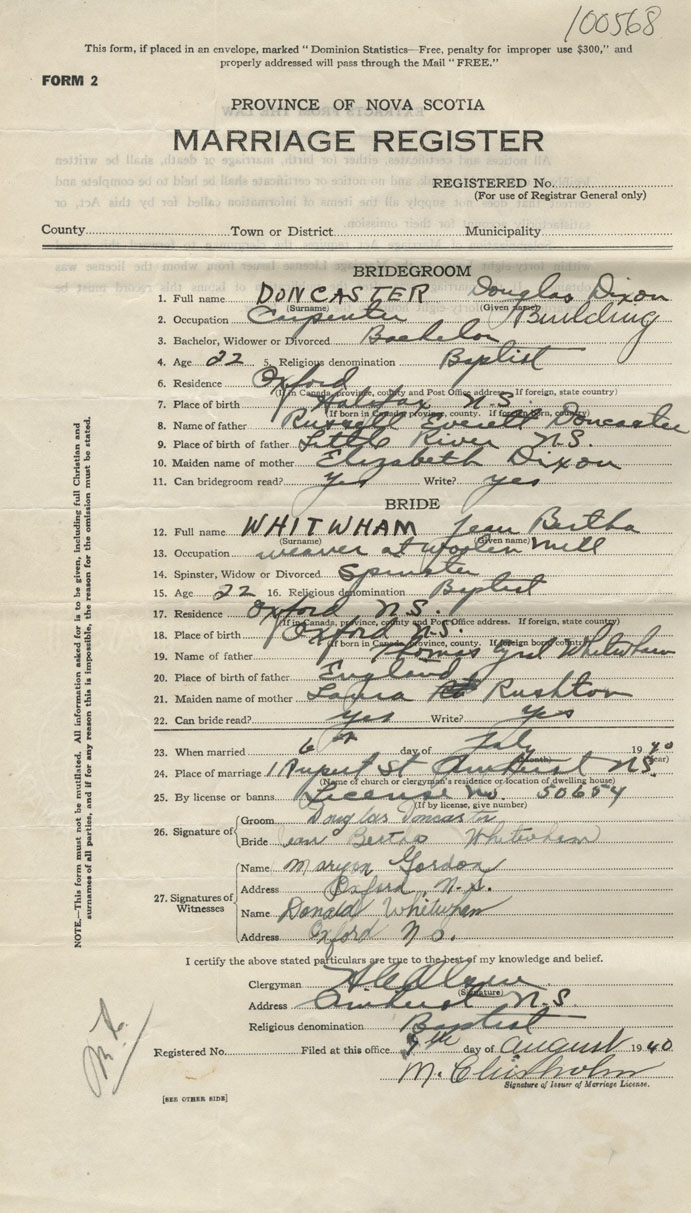 100568
This form, if placed in an envelope, marked "Dominion Statistics—Free, penalty for improper use $300," and
properly addressed will pass through the Mail "FREE."
FORM 2
PROVINCE OF NOVA SCOTIA
MARRIAGE REGISTER
REGISTERED No.
(For use of Registrar General only)
County Town or District Municipality
BRIDEGROOM
1. Full name DONCASTER Douglas Dixon
(Surname) (Given name)
2. Occupation Carpenter Building
3. Bachelor, Widower or Divorced Bachelor
4. Age 22 5. Religious denomination Baptist
6. Residence Oxford
(If in Canada, province, county and Post Office address. If foreign, state country)
7. Place of birth Halifax N.S.
(If born in Canada, province, county. If foreign born, country)
8. Name of father Russell Everett Doncaster
9. Place of birth of father Little River N.S.
10. Maiden name of mother Elizabeth Dixon
11. Can bridegroom read? Yes Write? yes
BRIDE
12. Full name WHITWHAM Jean Bertha
(Surname) (Given name)
13. Occupation weaver at woolen mill
14. Spinster, Widow or Divorced Spinster
15. Age 22 16. Religious denomination Baptist
17. Residence Oxford N.S.
(If in Canada, province, county and Post Office address. If foreign, state country)
18. Place of birth Oxford N.S.
(If born in Canada, province, county. If foreign born, country)
19. Name of father Thomas Whitwham
20. Place of birth of father England
21. Maiden name of mother Laura Rushton
22. Can bride read? Yes Write? Yes
23. When married 6th day of July 1940
(Month) (Year)
24. Place of marriage 1 Rupert St Amherst N.S.
(Name of church or clergyman's residence or location of dwelling house)
25. By license or banns License No 50654
(If by license, give number)
26. Signature of
Groom Douglas Doncaster
Bride Jean Bertha Whitwham
27. Signatures of Witnesses
Name Maryon Gordon
Address Oxford, N.S.
Name Donald Whitwham
Address Oxford N.S.
I certify the above stated particulars are true to the best of my knowledge and belief.
Clergyman
(Signature)
Address Amherst N.S.
Religious denomination Baptist
Registered No. Filed at this office 7th day of August 1940
M. Chisholm
Signature of Issuer of Marriage License.
[SEE OTHER SIDE]
NOTE.—This form must not be mutilated. All information asked for is to be given, including full Christian and
surnames of all parties, and if for any reason this is impossible, the reason for the omission must be stated.